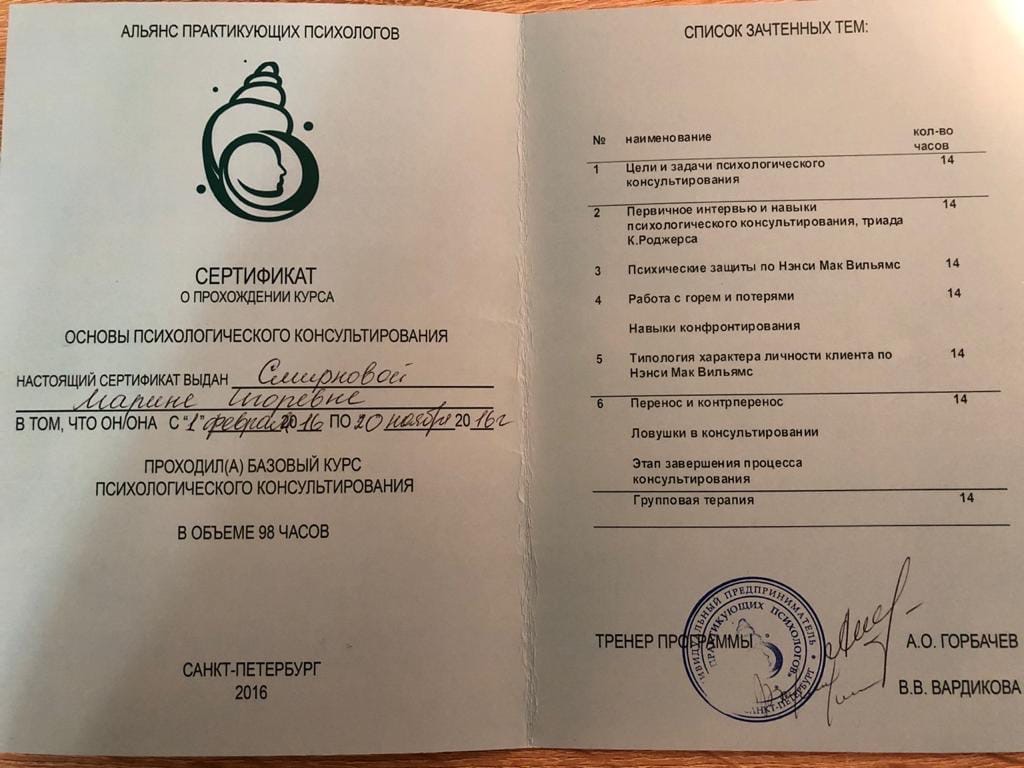 АЛЬЯНС ПРАКТИКУЮЩИХ ПСИХОЛОГОВ
СЕРТИФИКАТ
О ПРОХОЖДЕНИИ КУРСА
ОСНОВЫ ПСИХОЛОГИЧЕСКОГО КОНСУЛЬТИРОВАНИЯ
НАСТОЯЩИЙ СЕРТИФИКАТ ВЫДАН Смирновой
Марине Игоревне
В ТОМ, ЧТО ОН/ОНА С "1" февраля 2016 ПО 20 ноября 2016г
ПРОХОДИЛ(А) БАЗОВЫЙ КУРС
ПСИХОЛОГИЧЕСКОГО КОНСУЛЬТИРОВАНИЯ
В ОБЪЕМЕ 98 ЧАСОВ
САНКТ-ПЕТЕРБУРГ
2016
СПИСОК ЗАЧТЕННЫХ ТЕМ:
№ наименование кол-во
часов
1 Цели и задачи психологического 14
консультирования
2 Первичное интервью и навыки 14
психологического консультирования, триада
К.Роджерса
3 Психические защиты по Нэнси Мак Вильямс 14
4 Работа с горем и потерями 14
Навыки конфронтирования
5 Типология характера личности клиента по 14
Нэнси Мак Вильямс
6 Перенос и контрперенос 14
Ловушки в консультировании
Этап завершения процесса
консультирования
Групповая терапия 14
ТРЕНЕР ПРОГРАММЫ А.О. ГОРБАЧЕВ
В.В. ВАРДИКОВА
ПРЕДПРИНИМАТЕЛЬ
ПРАКТИКУЮЩИХ ПСИХОЛОГОВ»